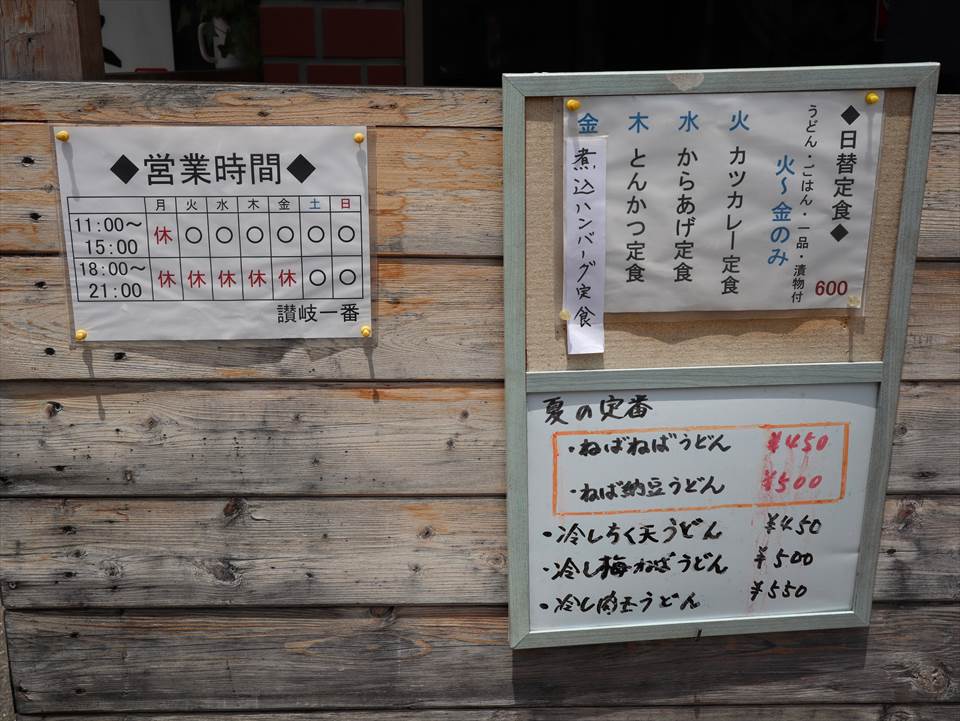 ◆営業時間◆
月 火 水 木 金 土 日
11:00～15:00 休 ○ ○ ○ ○ ○ ○
18:00～21:00 休 休 休 休 休 ○ ○
讃岐一番
◆日替定食◆
うどん・ごはん・一品・漬物付
600
火～金のみ
火 カツカレー定食
水 からあげ定食
木 とんかつ定食
金 煮込ハンバーグ定食
夏の定番
・ねばねばうどん ¥450
・ねば納豆うどん ¥500
・冷しちく天うどん ¥450
・冷し梅ねばうどん ¥500
・冷し肉玉うどん ¥550